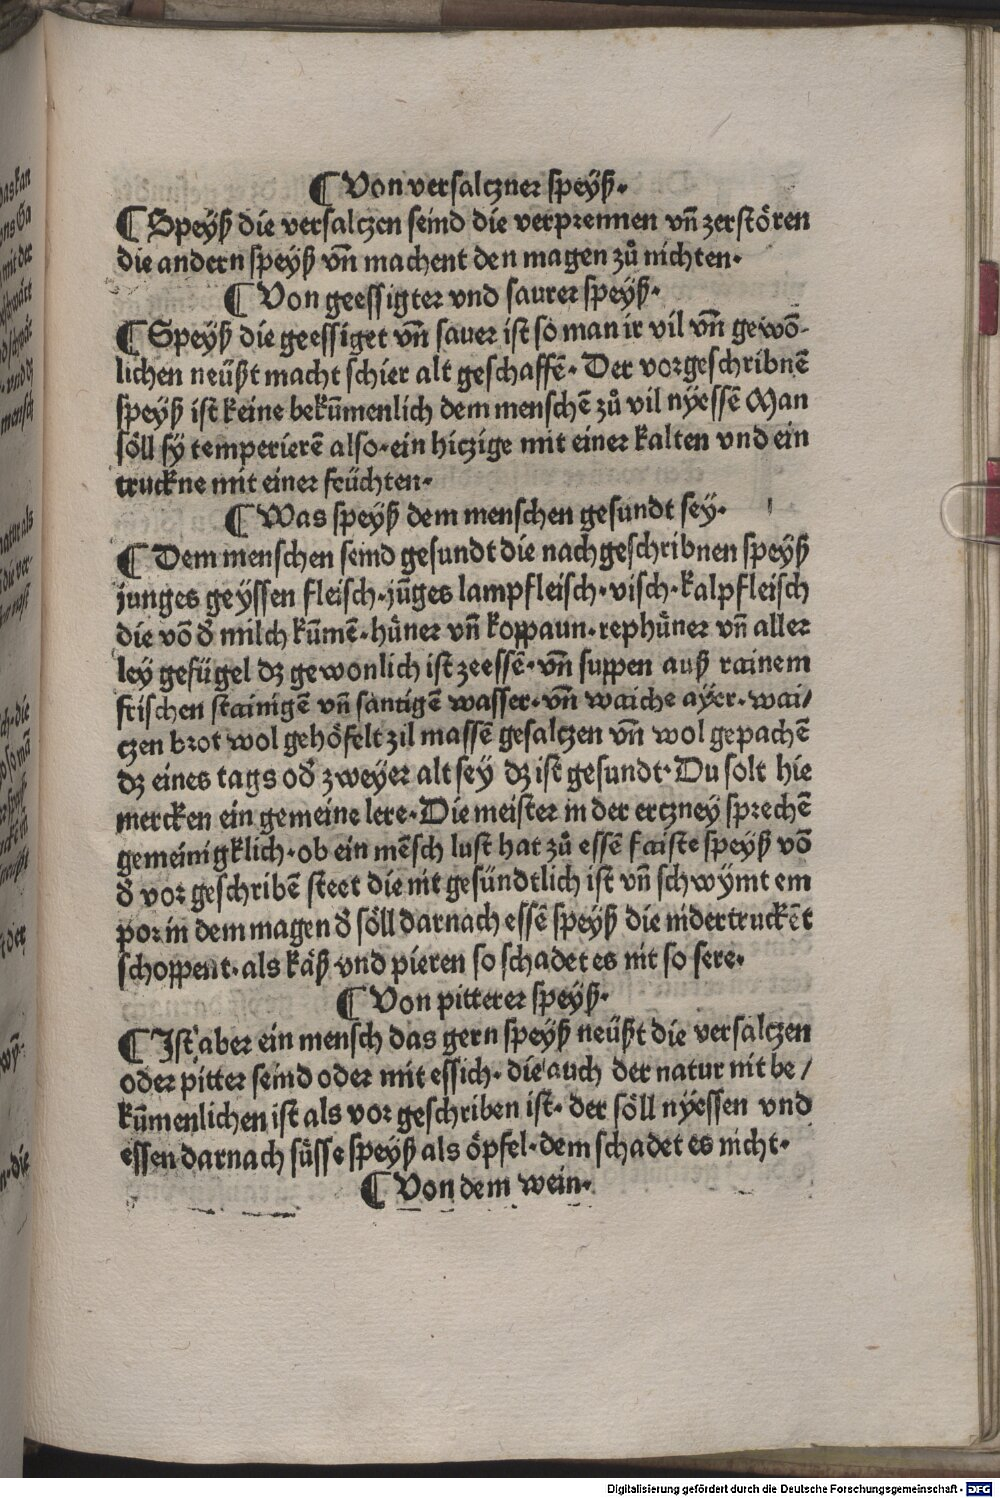 ¶ Von versalczner speyß·
¶ Speyß die versalczen seind die verprennen vn̄ zerstören
die andern speyß vn̄ machent den magen zů nichten·
¶ Von geessigter vnd saurer speyß·
¶ Speyß die geessiget vn̄ sauer ist so man ir vil vn̄ gewō-
lichen neüßt macht schier alt geschaffē· Der vorgeschribnē
speyß ist keine bekūmenlich dem menschē zů vil nyessē Man
söll sy temperierē also·ein hiczige mit einer kalten vnd ein
truckne mit einer feüchten·
¶ Was speyß dem menschen gesundt sey·
¶ Dem menschen seind gesundt die nachgeschribnen speyß
junges geyssen fleisch·jūges lampfleisch·visch·kalpfleisch
die vō d̄ milch kūmē·hüner vn̄ koppaun·rephüner vn̄ aller
ley gefügel dz gewonlich ist zeessē·vn̄ suppen auß rainem
frischen stainigē vn̄ santigē wasser·vn̄ waiche ayer·wai/
czen brot wol gehöfelt zil massē gesalczen vn̄ wol gepachē
dz eines tags od̄ zweyer alt sey dz ist gesundt·Du solt hie
mercken ein gemeine lere·Die meister in der erczney sprechē
gemeinigklich·ob ein mēsch lust hat zů essē faiste speyß vō
d̄ vor geschribē steet die nit gesündtlich ist vn̄ schwymt em
por in dem magen d̄ söll darnach essē speyß die nidertruckēt
schoppent·als käß vnd pieren so schadet es nit so sere·
¶ Von pitterer speyß·
¶ Ist aber ein mensch das gern speyß neüßt die versalczen
oder pitter seind oder mit essich· die auch der natur nit be /
kūmenlichen ist als vor geschriben ist· der söll nyessen vnd
essen darnach süsse speyß als öpfel·dem schadet es nicht·
¶ Von dem wein·
Digitalisierung gefördert durch die Deutsche Forschungsgemeinschaft - DFG